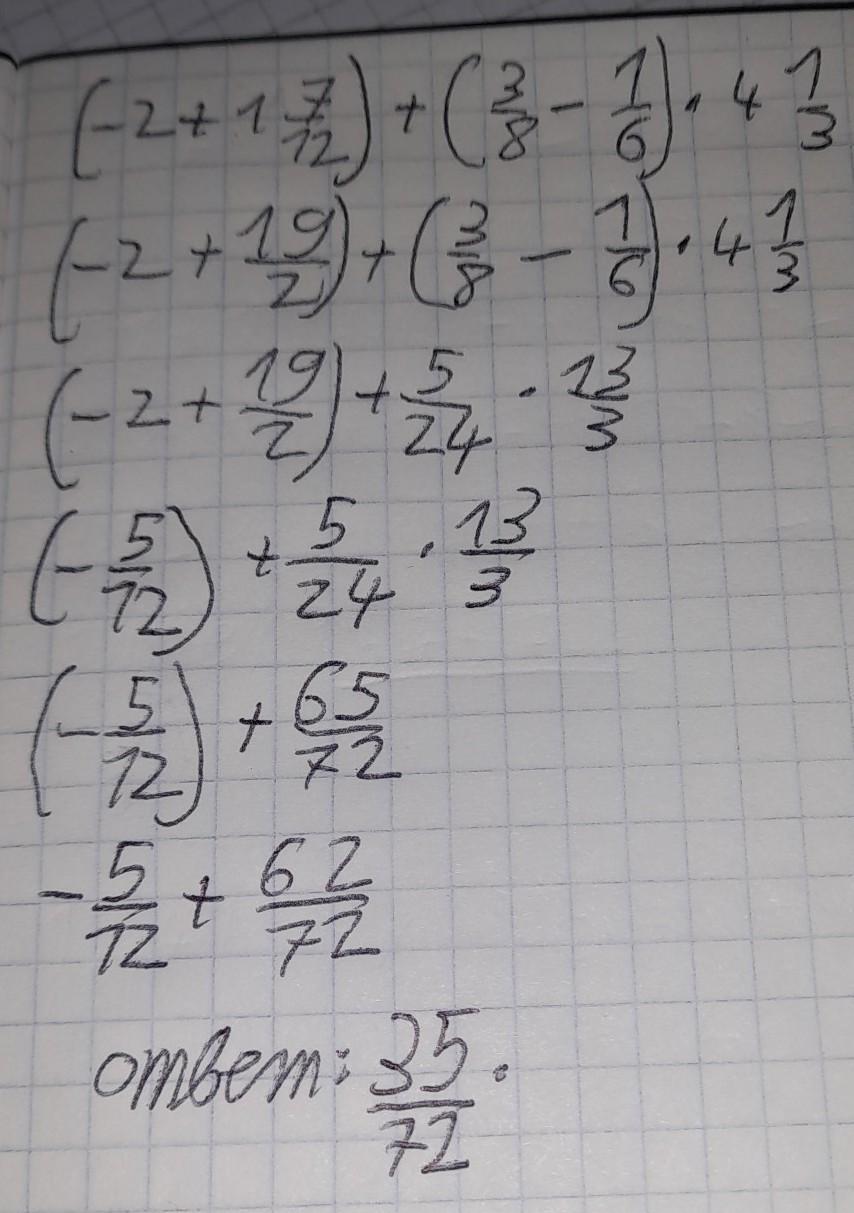 (-2 + 1 7/12) + (3/8 - 1/6) · 4 1/3
(-2 + 19/2) + (3/8 - 1/6) · 4 1/3
(-2 + 19/2) + 5/24 · 13/3
(-5/12) + 5/24 · 13/3
(-5/12) + 65/72
-5/12 + 62/72
ответ: 35/72.